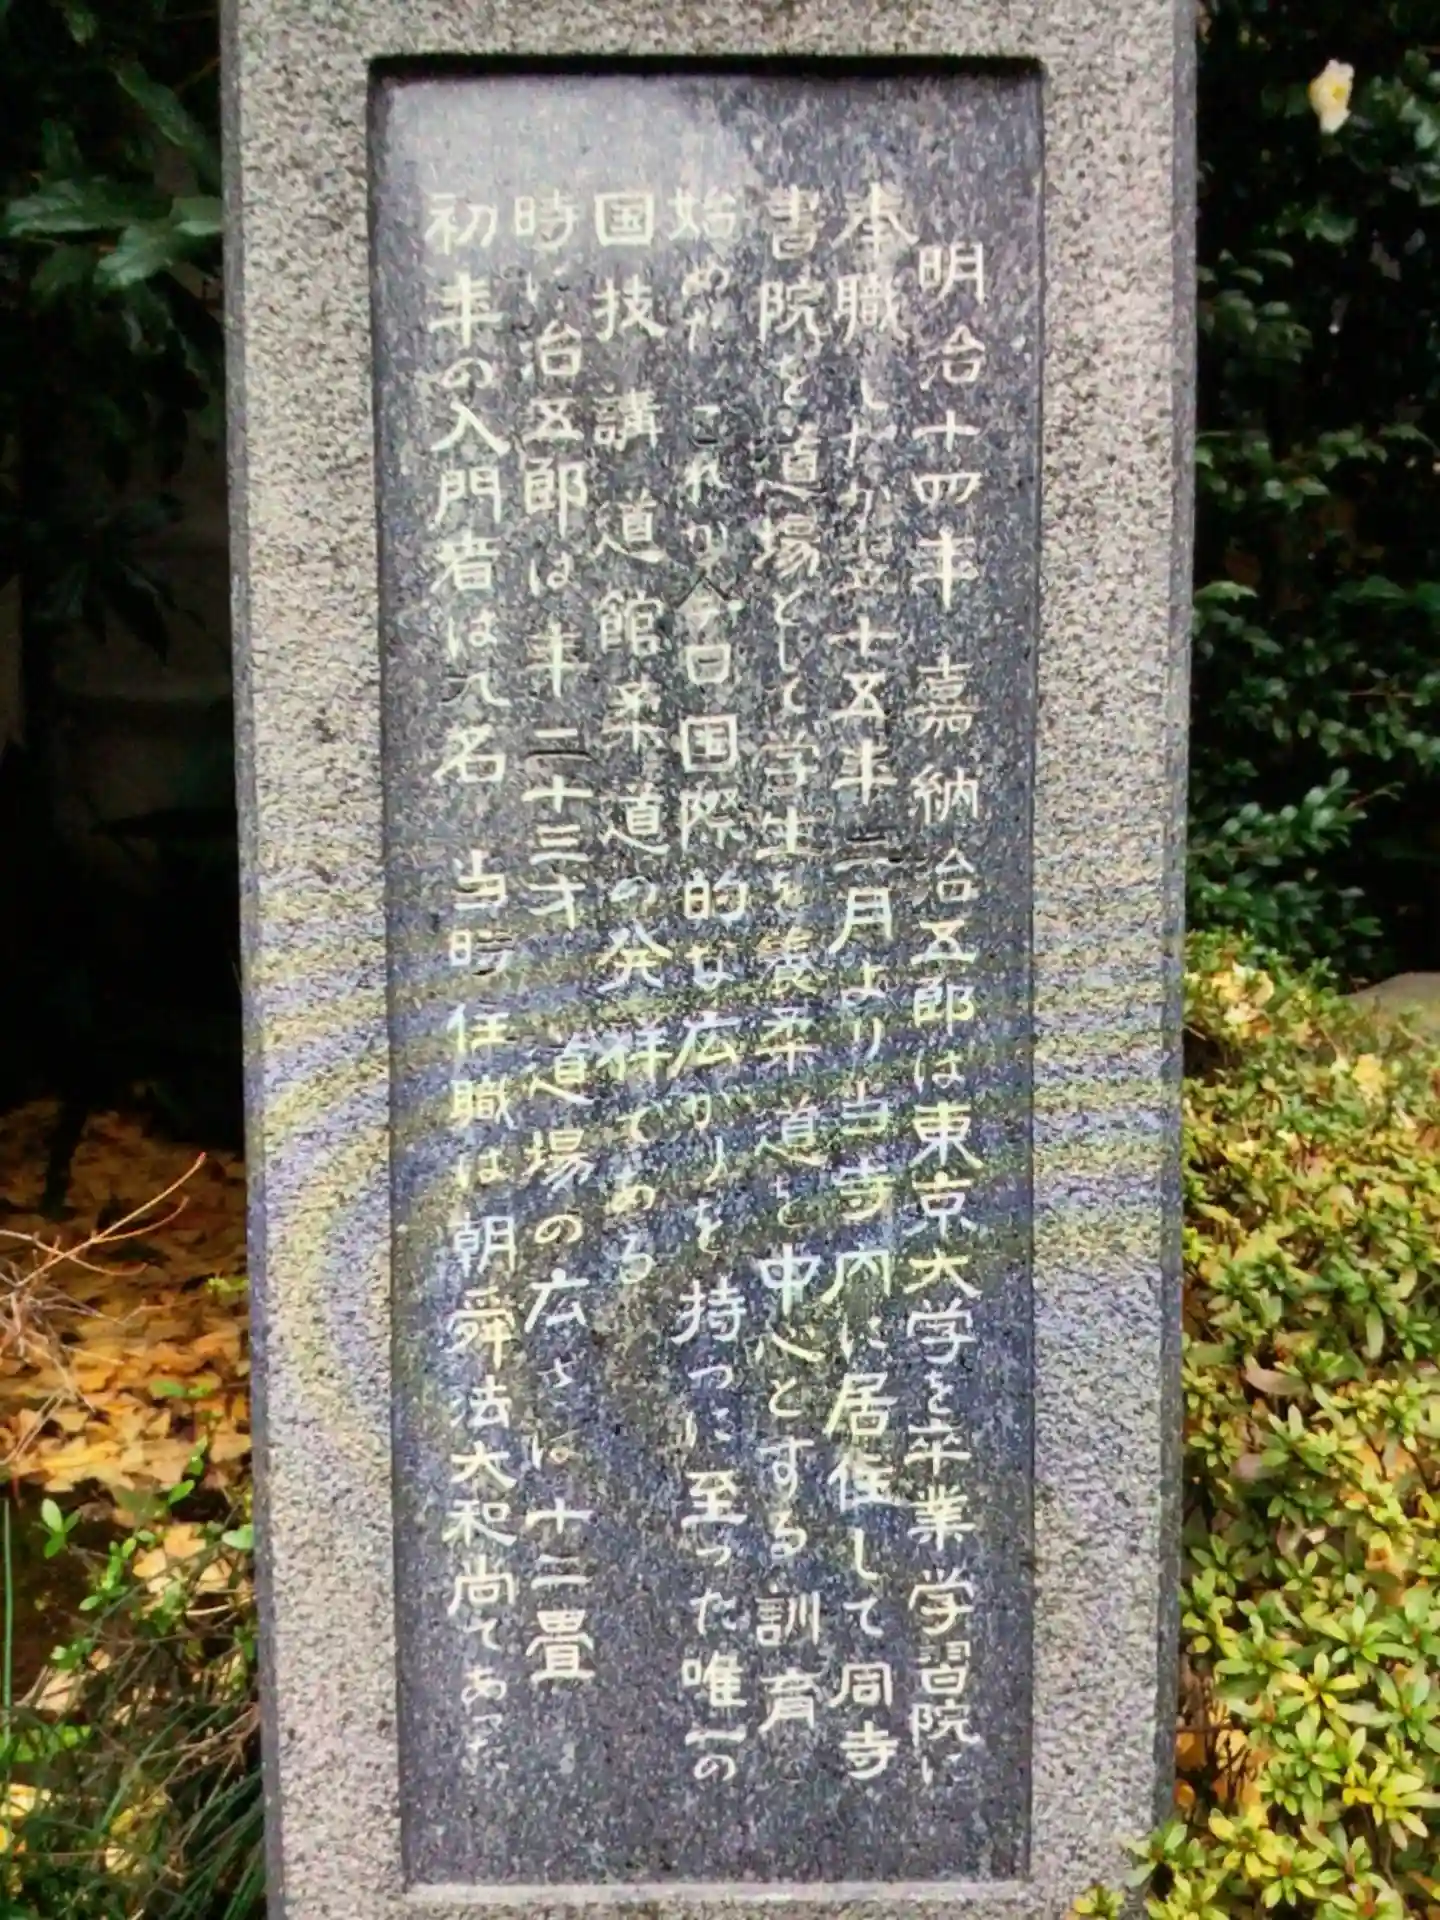 明治十四年 嘉納治五郎は東京大学を卒業 学習院に
本職したが 十五年二月より当寺内に居住して 同寺
書院を道場として学生を養 柔道を中心とする訓育
始めた これが今日国際的な広がりを持つに至った唯一の
国技 講道館柔道の発祥である
時に治五郎は年二十三才 道場の広さは十二畳
初年の入門者は九名 当時住職は朝舜法大和尚であった